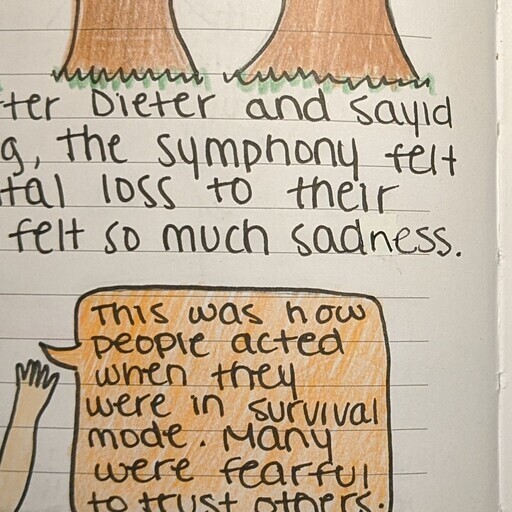 ter Dieter and Sayid
g, the symphony felt
tal loss to their
felt so much sadness.
This was how
people acted
when they
were in survival
mode. Many
were fearful
to trust others.